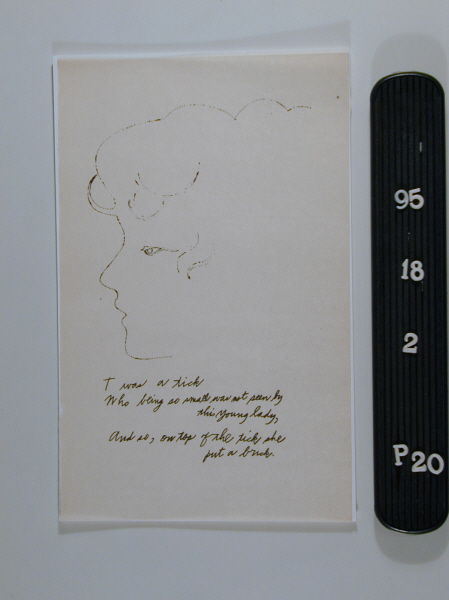 I was a tick
Who being so small was not seen by
this young lady,
And so, on top of the tick she
put a brick.
95
18
2
P20